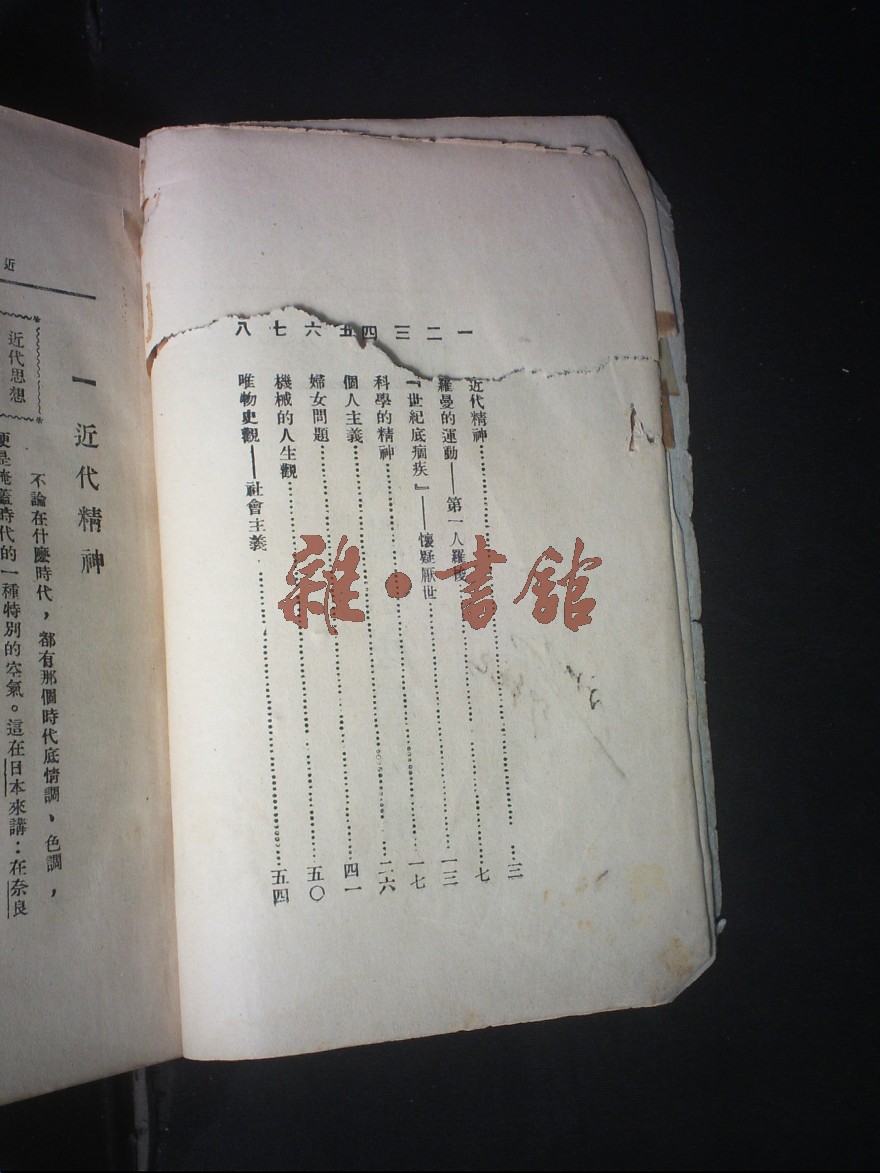 一 近代精神……三
二 羅曼的運動——第一人羅梭……七
三 『世紀底痼疾』——懷疑厭世……一三
四 科學的精神……一七
五 個人主義……二六
六 婦女問題……四一
七 機械的人生觀……五〇
八 唯物史觀——社會主義……五四
雜·書館
一 近代精神
不論在什麼時代，都有那個時代底情調、色調，
便是掩蓋時代的一種特別的空氣。這在日本來講：在奈良
近代思想
近